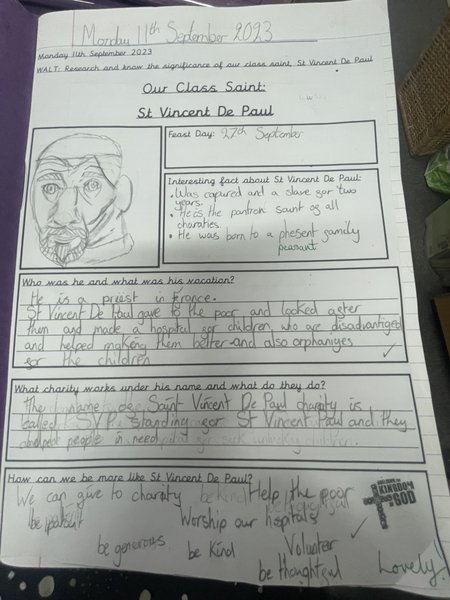 Monday 11th September 2023
Monday 11th September 2023
WALT: Research and know the significance of our class saint, St Vincent De Paul
Our Class Saint:
St Vincent De Paul
Feast Day: 27th September
Interesting fact about St Vincent De Paul:
• Was capured and a slave for two
years.
• He is the pantron saint of all
charaties.
• He was born to a phesent family
peasant
Who was he and what was his vocation?
He is a priest in france.
St Vincent De Paul gave to the poor and looked after
them and made a hospital for children who are disadvantiged
and helped making them better and also orphaniges
for the children
What charity works under his name and what do they do?
The Saint Vincent De Paul charity is
called SVP standing for ST Vincent Paul and they
help people in need
How can we be more like St Vincent De Paul?
We can give to charity be kind Help the poor
be patient Worship our hospitals
be generous be kind Volunter
be thoughtful
KINGDOM
GOD
Lovely!